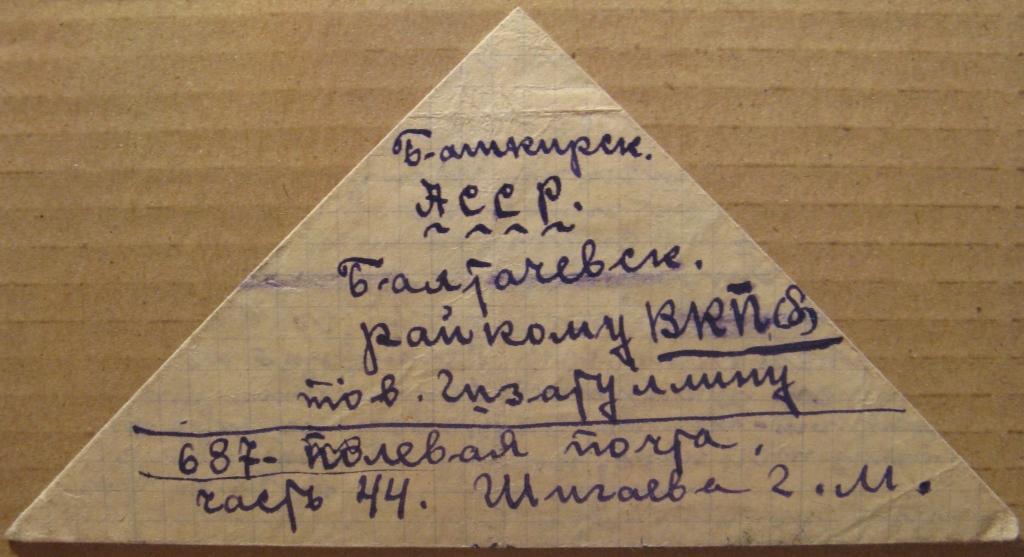 Башкирск.
АССР.
Балтачевск.
райкому ВКП(б)
тов. Гизатуллину
687- полевая почта,
часть 44. Шигаева Г.М.